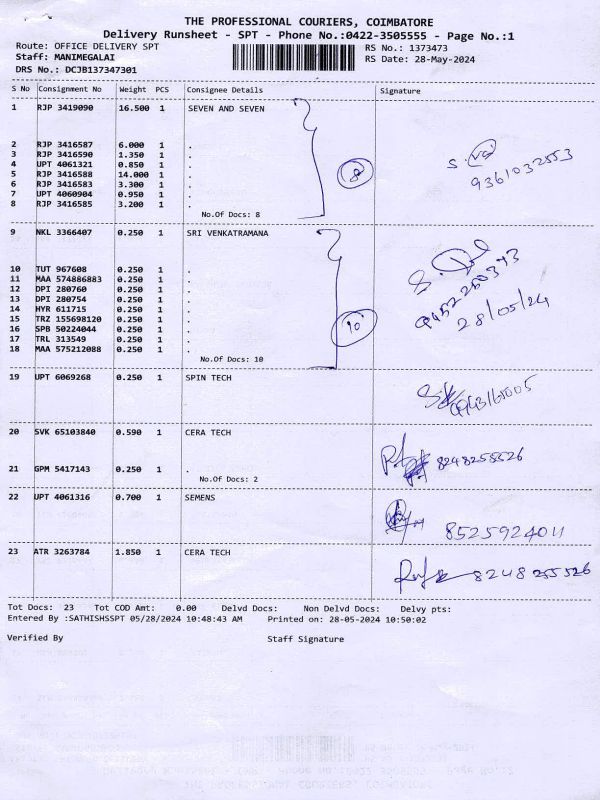 THE PROFESSIONAL COURIERS, COIMBATORE
Delivery Runsheet - SPT - Phone No.:0422-3505555 - Page No.:1
Route: OFFICE DELIVERY SPT RS No.: 1373473
Staff: MANIMEGALAI RS Date: 28-May-2024
DRS No.: DCJB137347301
S No Consignment No Weight PCS Consignee Details Signature
1 RJP 3419090 16.500 1 SEVEN AND SEVEN
2 RJP 3416587 6.000 1 .
3 RJP 3416590 1.350 1 .
4 UPT 4061321 0.850 1 .
5 RJP 3416588 14.000 1 .
6 RJP 3416583 3.300 1 .
7 UPT 4060904 0.950 1 .
8 RJP 3416585 3.200 1 .
No.Of Docs: 8
8
9361032553
9 NKL 3366407 0.250 1 SRI VENKATRAMANA
10 TUT 967608 0.250 1 .
11 MAA 574886883 0.250 1 .
12 DPI 280760 0.250 1 .
13 DPI 280754 0.250 1 .
14 HYR 611715 0.250 1 .
15 TRZ 155698120 0.250 1 .
16 SPB 50224044 0.250 1 .
17 TRL 313549 0.250 1 .
18 MAA 575212088 0.250 1 .
No.Of Docs: 10
10
28/05/24
19 UPT 6069268 0.250 1 SPIN TECH
20 SVK 65103840 0.590 1 CERA TECH
21 GPM 5417143 0.250 1 .
No.Of Docs: 2
8248255526
22 UPT 4061316 0.700 1 SEMENS
8525924011
23 ATR 3263784 1.850 1 CERA TECH
8248255526
Tot Docs: 23 Tot COD Amt: 0.00 Delvd Docs: Non Delvd Docs: Delvy pts:
Entered By :SATHISHSSPT 05/28/2024 10:48:43 AM Printed on: 28-05-2024 10:50:02
Verified By Staff Signature